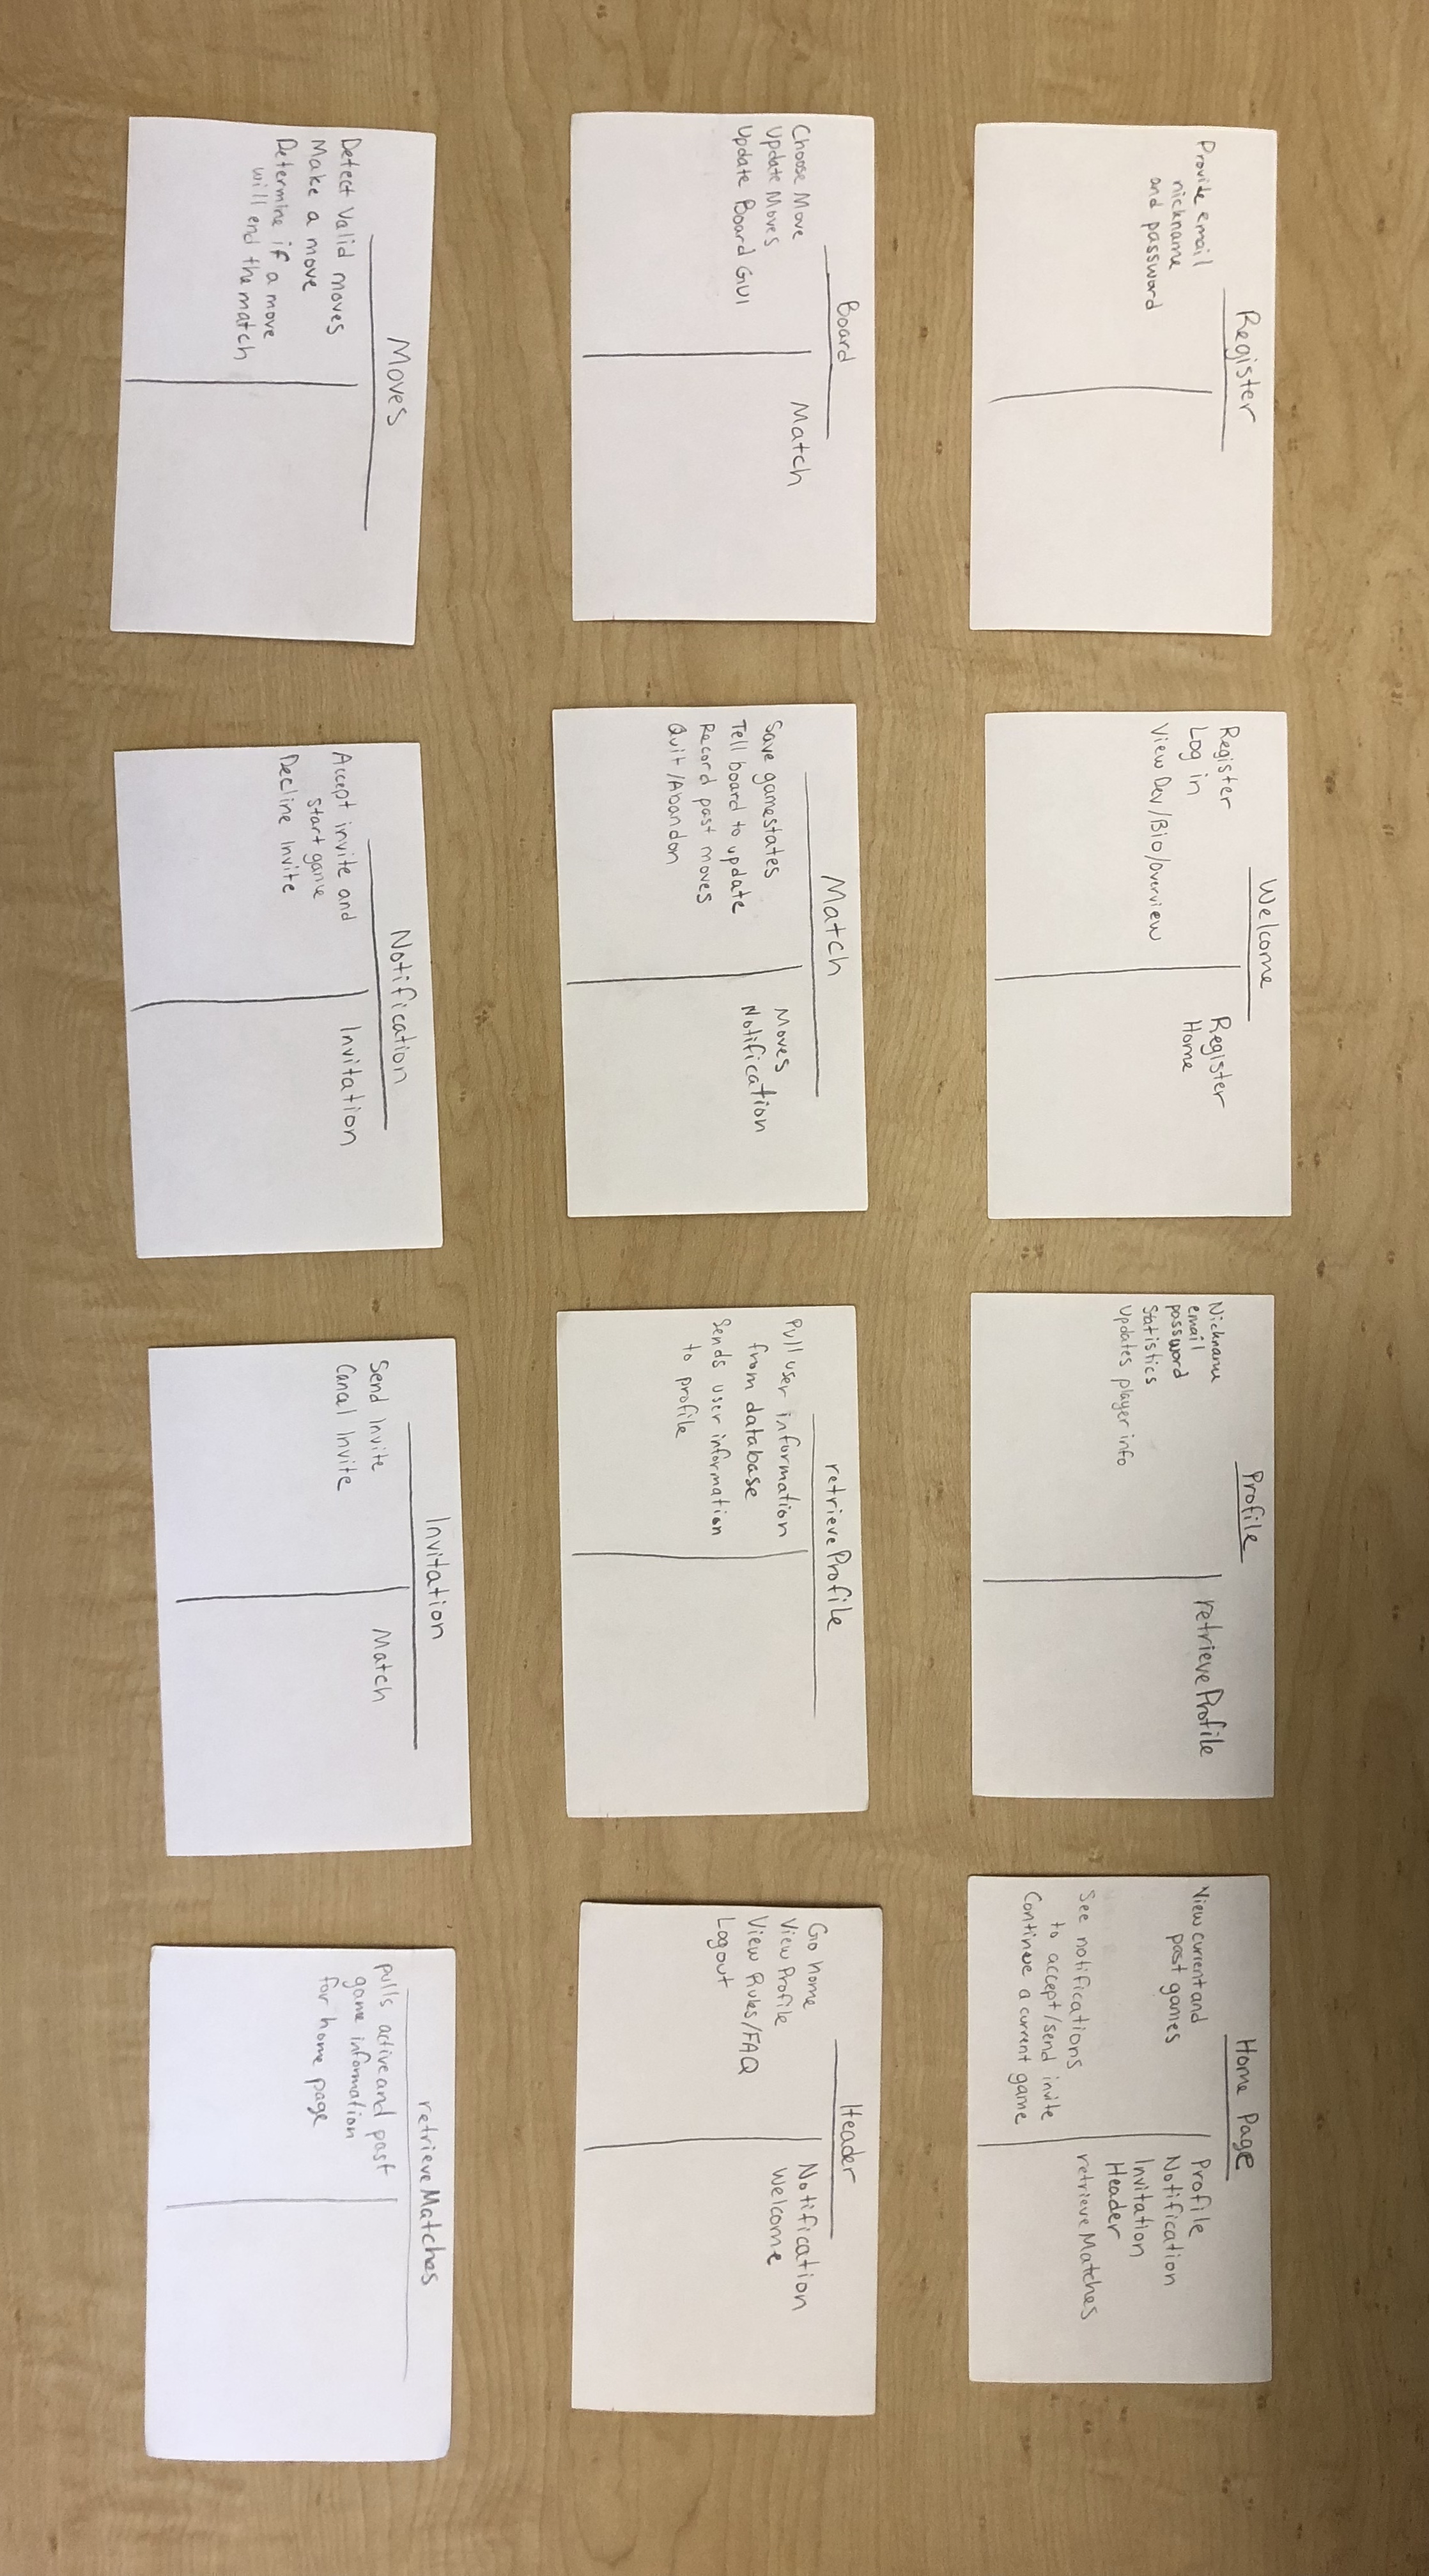 Register
Provide email
nickname
and password
Welcome
Register
Log in
View Dev/Bio/Overview
Register
Home
Profile
Nickname
email
password
Statistics
updates player info
retrieveProfile
Home Page
View current and
past games
See notifications
to accept/send invite
Continue a current game
Profile
Notification
Invitation
Header
retrieveMatches
Board
Choose Move
Update Moves
Update Board GUI
Match
Match
Save gamestates
Tell board to update
Record past moves
Quit/Abandon
Moves
Notification
retrieveProfile
Pull user information
from database
Sends user information
to profile
Header
Go home
View Profile
View Rules/FAQ
Logout
Notification
Welcome
Moves
Detect Valid moves
Make a move
Determine if a move
will end the match
Notification
Accept invite and
start game
Decline Invite
Invitation
Invitation
Send Invite
Cancel Invite
Match
retrieveMatches
pulls active and past
game information
for home page